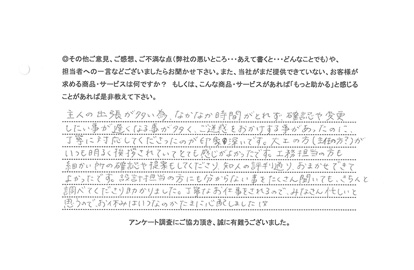 ◎その他ご意見、ご感想、ご不満な点（弊社の悪いところ・・・あえて書くと・・・どんなことでも）や、
担当者への一言などございましたらお聞かせ下さい。また、当社がまだ提供できていない、お客様が
求める商品・サービスは何ですか？ もしくは、こんな商品・サービスがあれば「もっと助かる」と感じる
ことがあれば是非教えて下さい。
主人の出張が多い為、なかなか時間がとれず、確認や変更
したい事が遅くなる事が多く、ご迷惑をおかけする事があったのに、
丁寧に対応してくださったのが
いつも明るく挨拶されていてとても感じがよかったです。工務担当の方も
細かい所の確認や提案もしてくださり、知人の評判通りおまかせできて
よかったです。設計担当の方にも分からない事をたくさん聞いても、きちんと
調べてくださり助かりました。丁寧なお仕事をされるので、みなさん忙しいと
思うのでお休みはいつなのかたまに心配しました
アンケート調査にご協力頂き、誠に有難うございました。